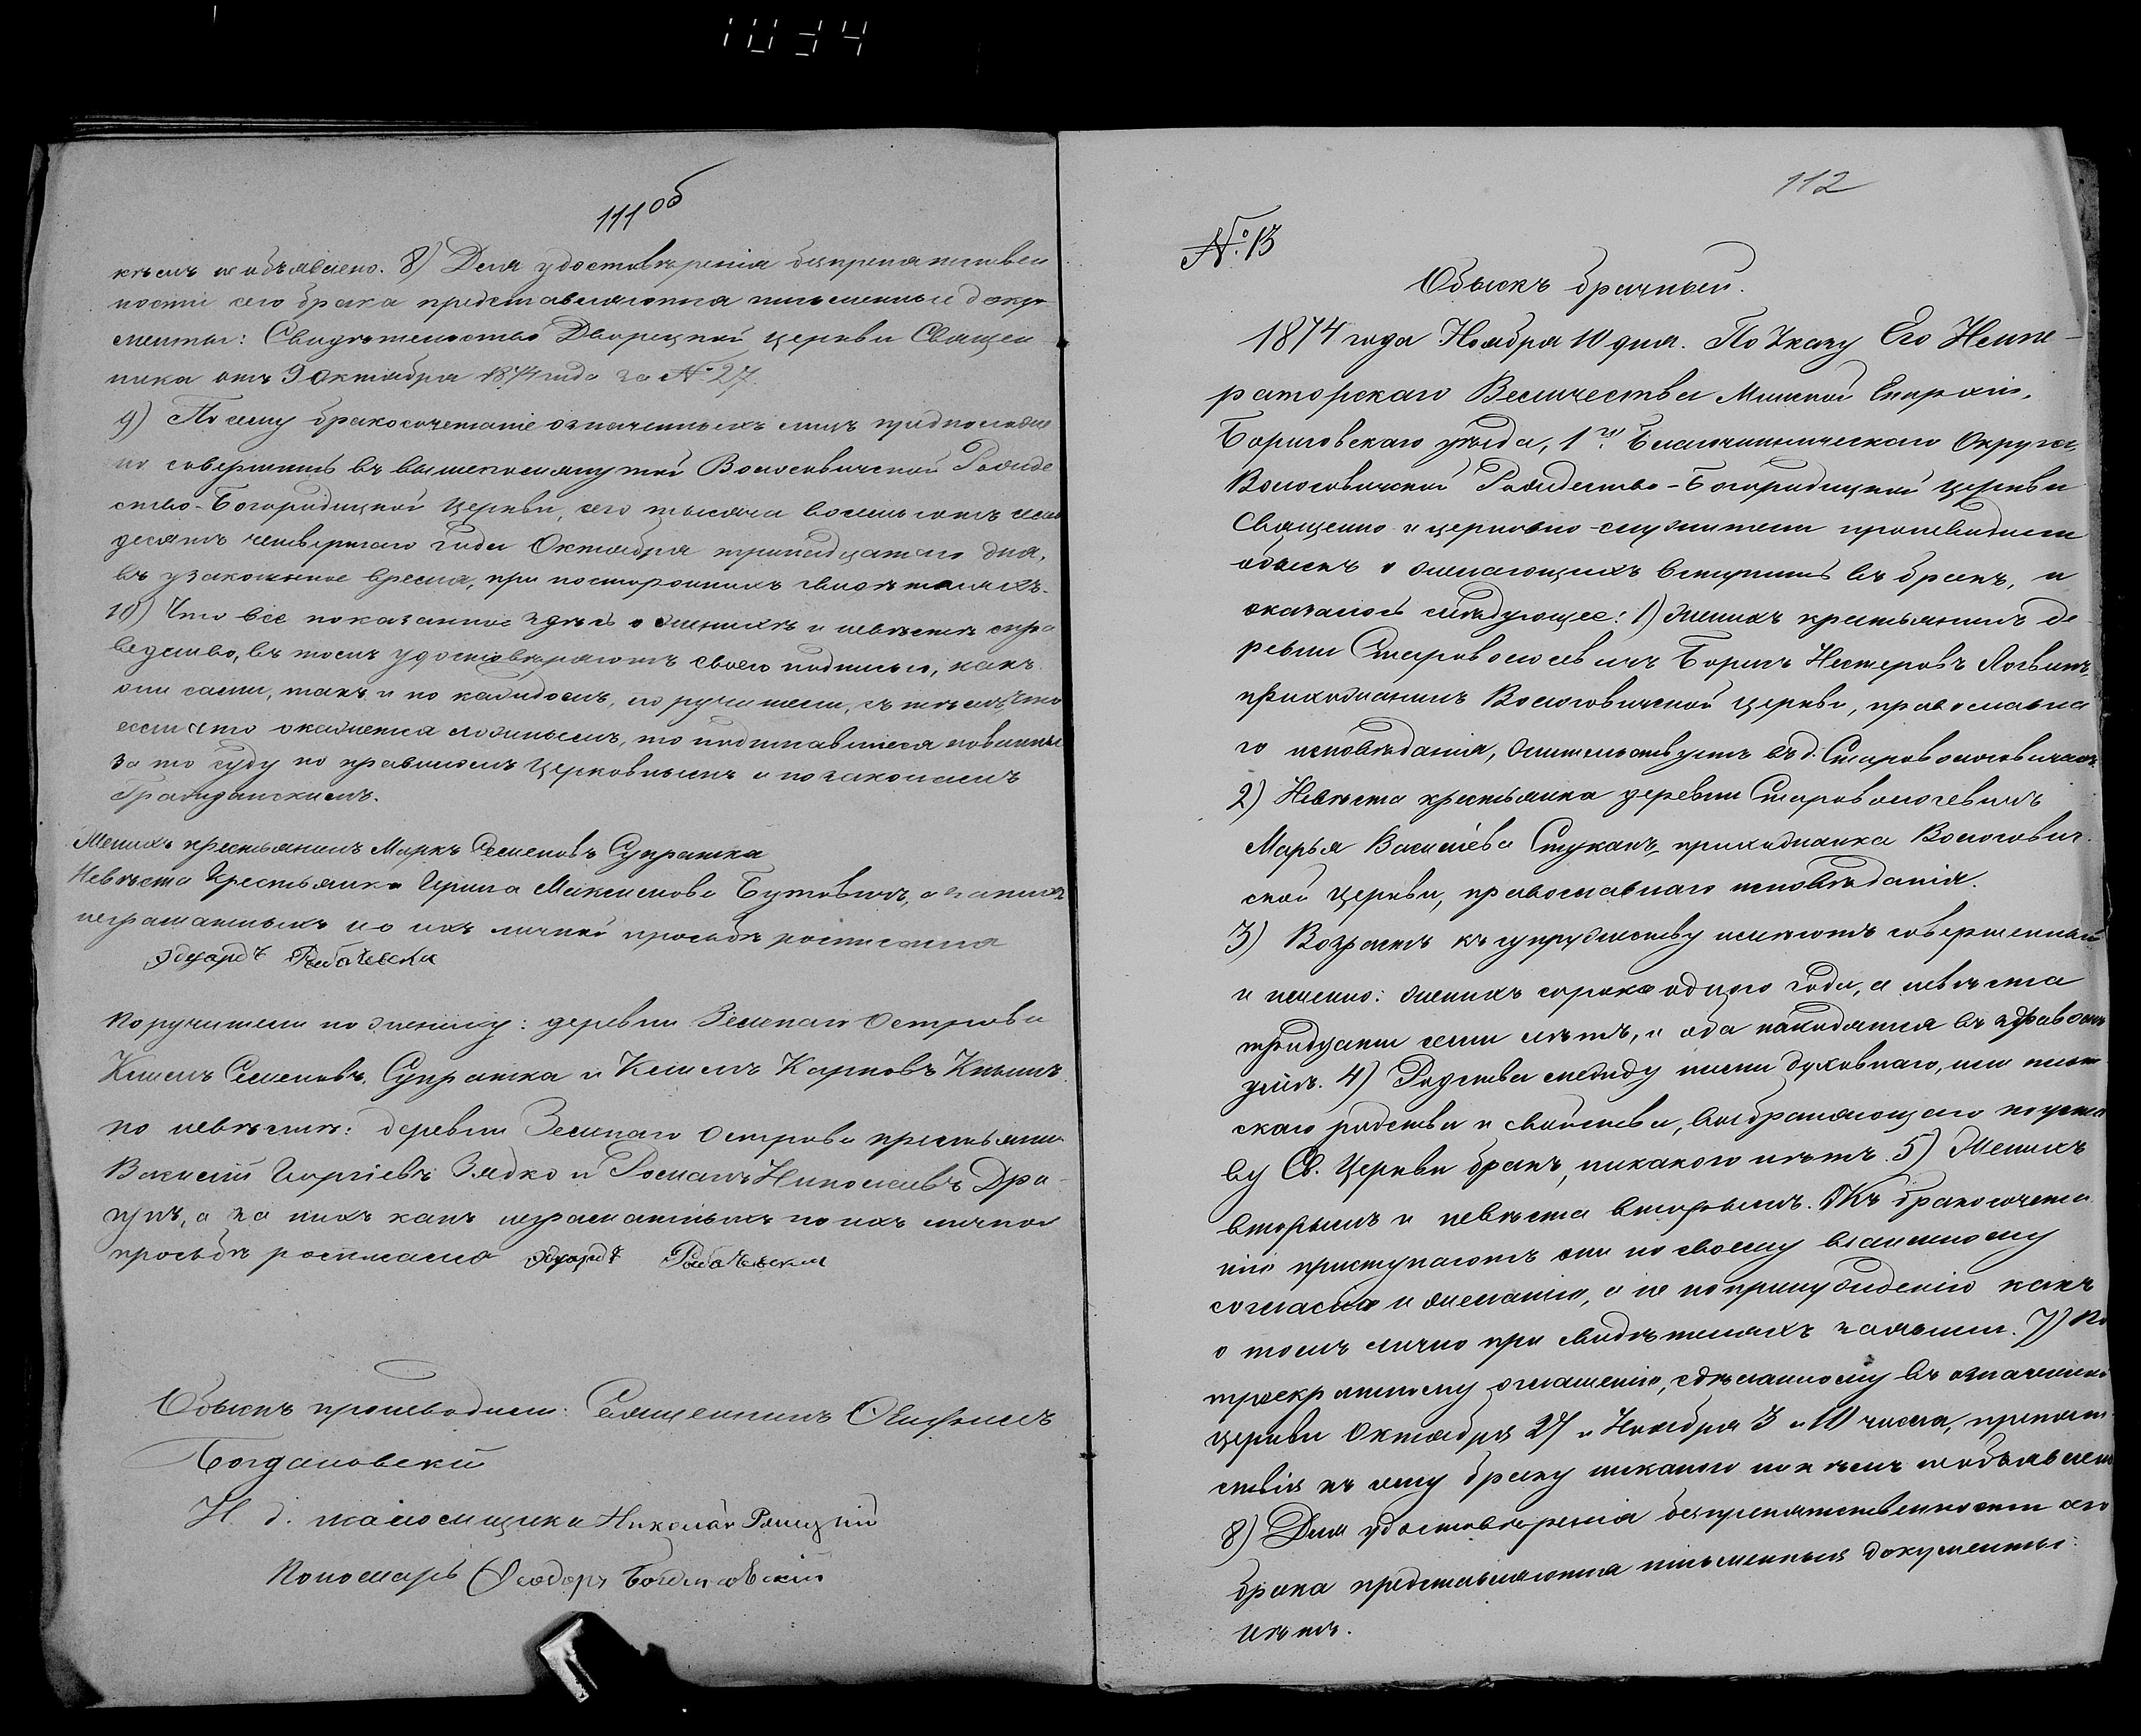 111об
кѣмъ не объявлено. 8) Для удостовѣренія безпрепятствен
ности сего брака представляются письменные доку
менты: Свидѣтельство Дворецкой церкви Священ
ника отъ 9 Октября 1874 года за № 27.
9) По сему бракосочетаніе означенныхъ лицъ предположе
но совершить въ вышепомянутой Волосовичской Рожде
ство-Богородицкой Церкви, сего тысяча восемь сотъ семь
десятъ четвертаго года Октября тринадцатаго дня,
въ узаконенное время, при постороннихъ свидѣтеляхъ.
10) Что все показанное здѣсь о женихѣ и невѣстѣ спра
ведливо, въ томъ удостовѣряютъ своею подписью, какъ
они сами, такъ и по каждомъ, поручители, съ тѣмъ, что
если что окажется ложнымъ, то подписавшіеся повинны
за то суду по правиламъ Церковнымъ и по законамъ
Гражданскимъ.
Женихъ крестьянинъ Маркъ Семеновъ Супратка
Невѣста Крестьянка Ирина Максимова Бутовичъ, а за нихъ
неграматныхъ по ихъ личной просьбѣ росписался
Эдуардъ
Поручители по жениху: деревни Зеленаго Острова
Климъ Семеновъ Супратка и Климъ Карповъ
по невѣстѣ: деревни Зеленаго Острова крестьяне
Василій Георгіевъ Зядко и Романъ Николаевъ Дра
а за нихъ какъ неграматныхъ по ихъ личной
просьбѣ росписался Эдуардъ
Обыскъ производили: Священникъ
Богдановскій
И. д. псаломщика Николай
Пономарь Ѳеодоръ Богдановскій
112
№ 13
Обыскъ брачный.
1874 года Ноября 10 дня. По Указу Его Импе-
раторскаго Величества Минской Епархіи,
Борисовскаго уѣзда, 1го Благочинническаго Округа,
Волосовичской Рождество-Богородицкой церкви
Священно и церковно-служители производили
обыскъ о желающихъ вступить въ бракъ, и
оказалось слѣдующее: 1) Женихъ крестьянинъ де
ревни Староволосевичъ Борисъ Нестеровъ Логвинъ,
прихожанинъ Волосовичской церкви, православна
го исповѣданія, жительствуетъ въ д. Староволосовичахъ
2) Невѣста крестьянка деревни Староволосевичъ
Марья Василіева Стукачъ, прихожанка Волосович
ской церкви, православнаго исповѣданія.
3) Возрастъ къ супружеству имѣютъ совершенный
и именно: женихъ сорока одного года, а невѣста
тридцати семи лѣтъ, и оба находятся въ здравомъ
умѣ. 4) Родства между ними духовнаго, или плот
скаго родства и свойства, возбраняющаго по уста
ву Св. Церкви бракъ, никакого нѣтъ. 5) Женихъ
вторымъ и невѣста вторымъ. 6) Къ бракосочета
нію приступаютъ они по своему взаимному
согласію и желанію, а не по принужденію какъ
о томъ лично при свидѣтеляхъ заявили. 7) По
троекратному оглашенію, сдѣланному въ означенной
церкви Октября 27 и Ноября 3 и 10 числа, препят
ствія къ сему браку никакого ни кѣмъ не объявлено
8) Для удостовѣренія безпрепятственности сего
брака представляются письменныя документы:
нѣтъ.